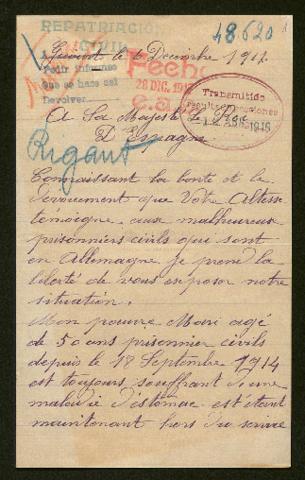 REPATRIACIÓN
CIVIL
48.620
le 6 Decembre 191
Pedir informe
que se hace así
Devolver
Fecho
28 DIC. 191
Transmitido
A Sa Majesté Le Roi
D'Espagne
Rigaut
Connaissant la bonté et le
devouement que Votre Altesse
témoigne aux malheureux
prisonniers civils qui sont
en Allemagne je prend la
liberté de vous exposer notre
situation.
Mon pauvre Mari agé
de 50 ans prisonnier civils
depuis le 18 Septembre 1914
est toujours souffrant d'une
maladie d'estomac est étant
maintenant hors du service